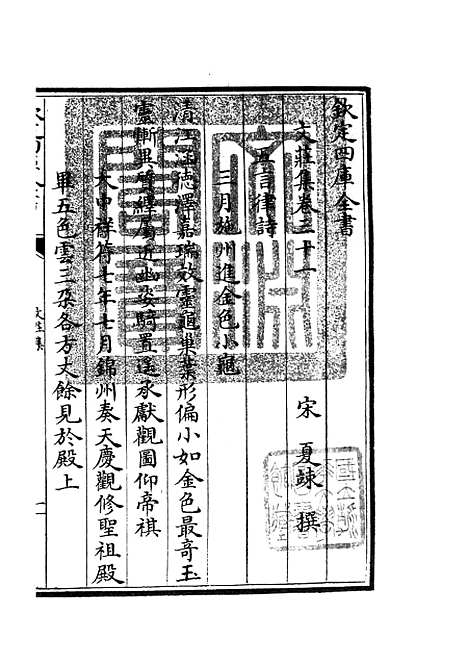 欽定四庫全書
文莊集卷三十一
宋 夏竦 撰
五言律詩
三月施州進金色小龜
清江涵徳澤嘉瑞效靈龜巢葉形偏小如金色最奇玉
靈慚異質纁屬近幽姿騎置遥承獻觀圖仰帝祺
大中祥符七年七月錦州奏天慶觀修聖祖殿
畢五色雲三朶各方丈餘見於殿上
文莊集